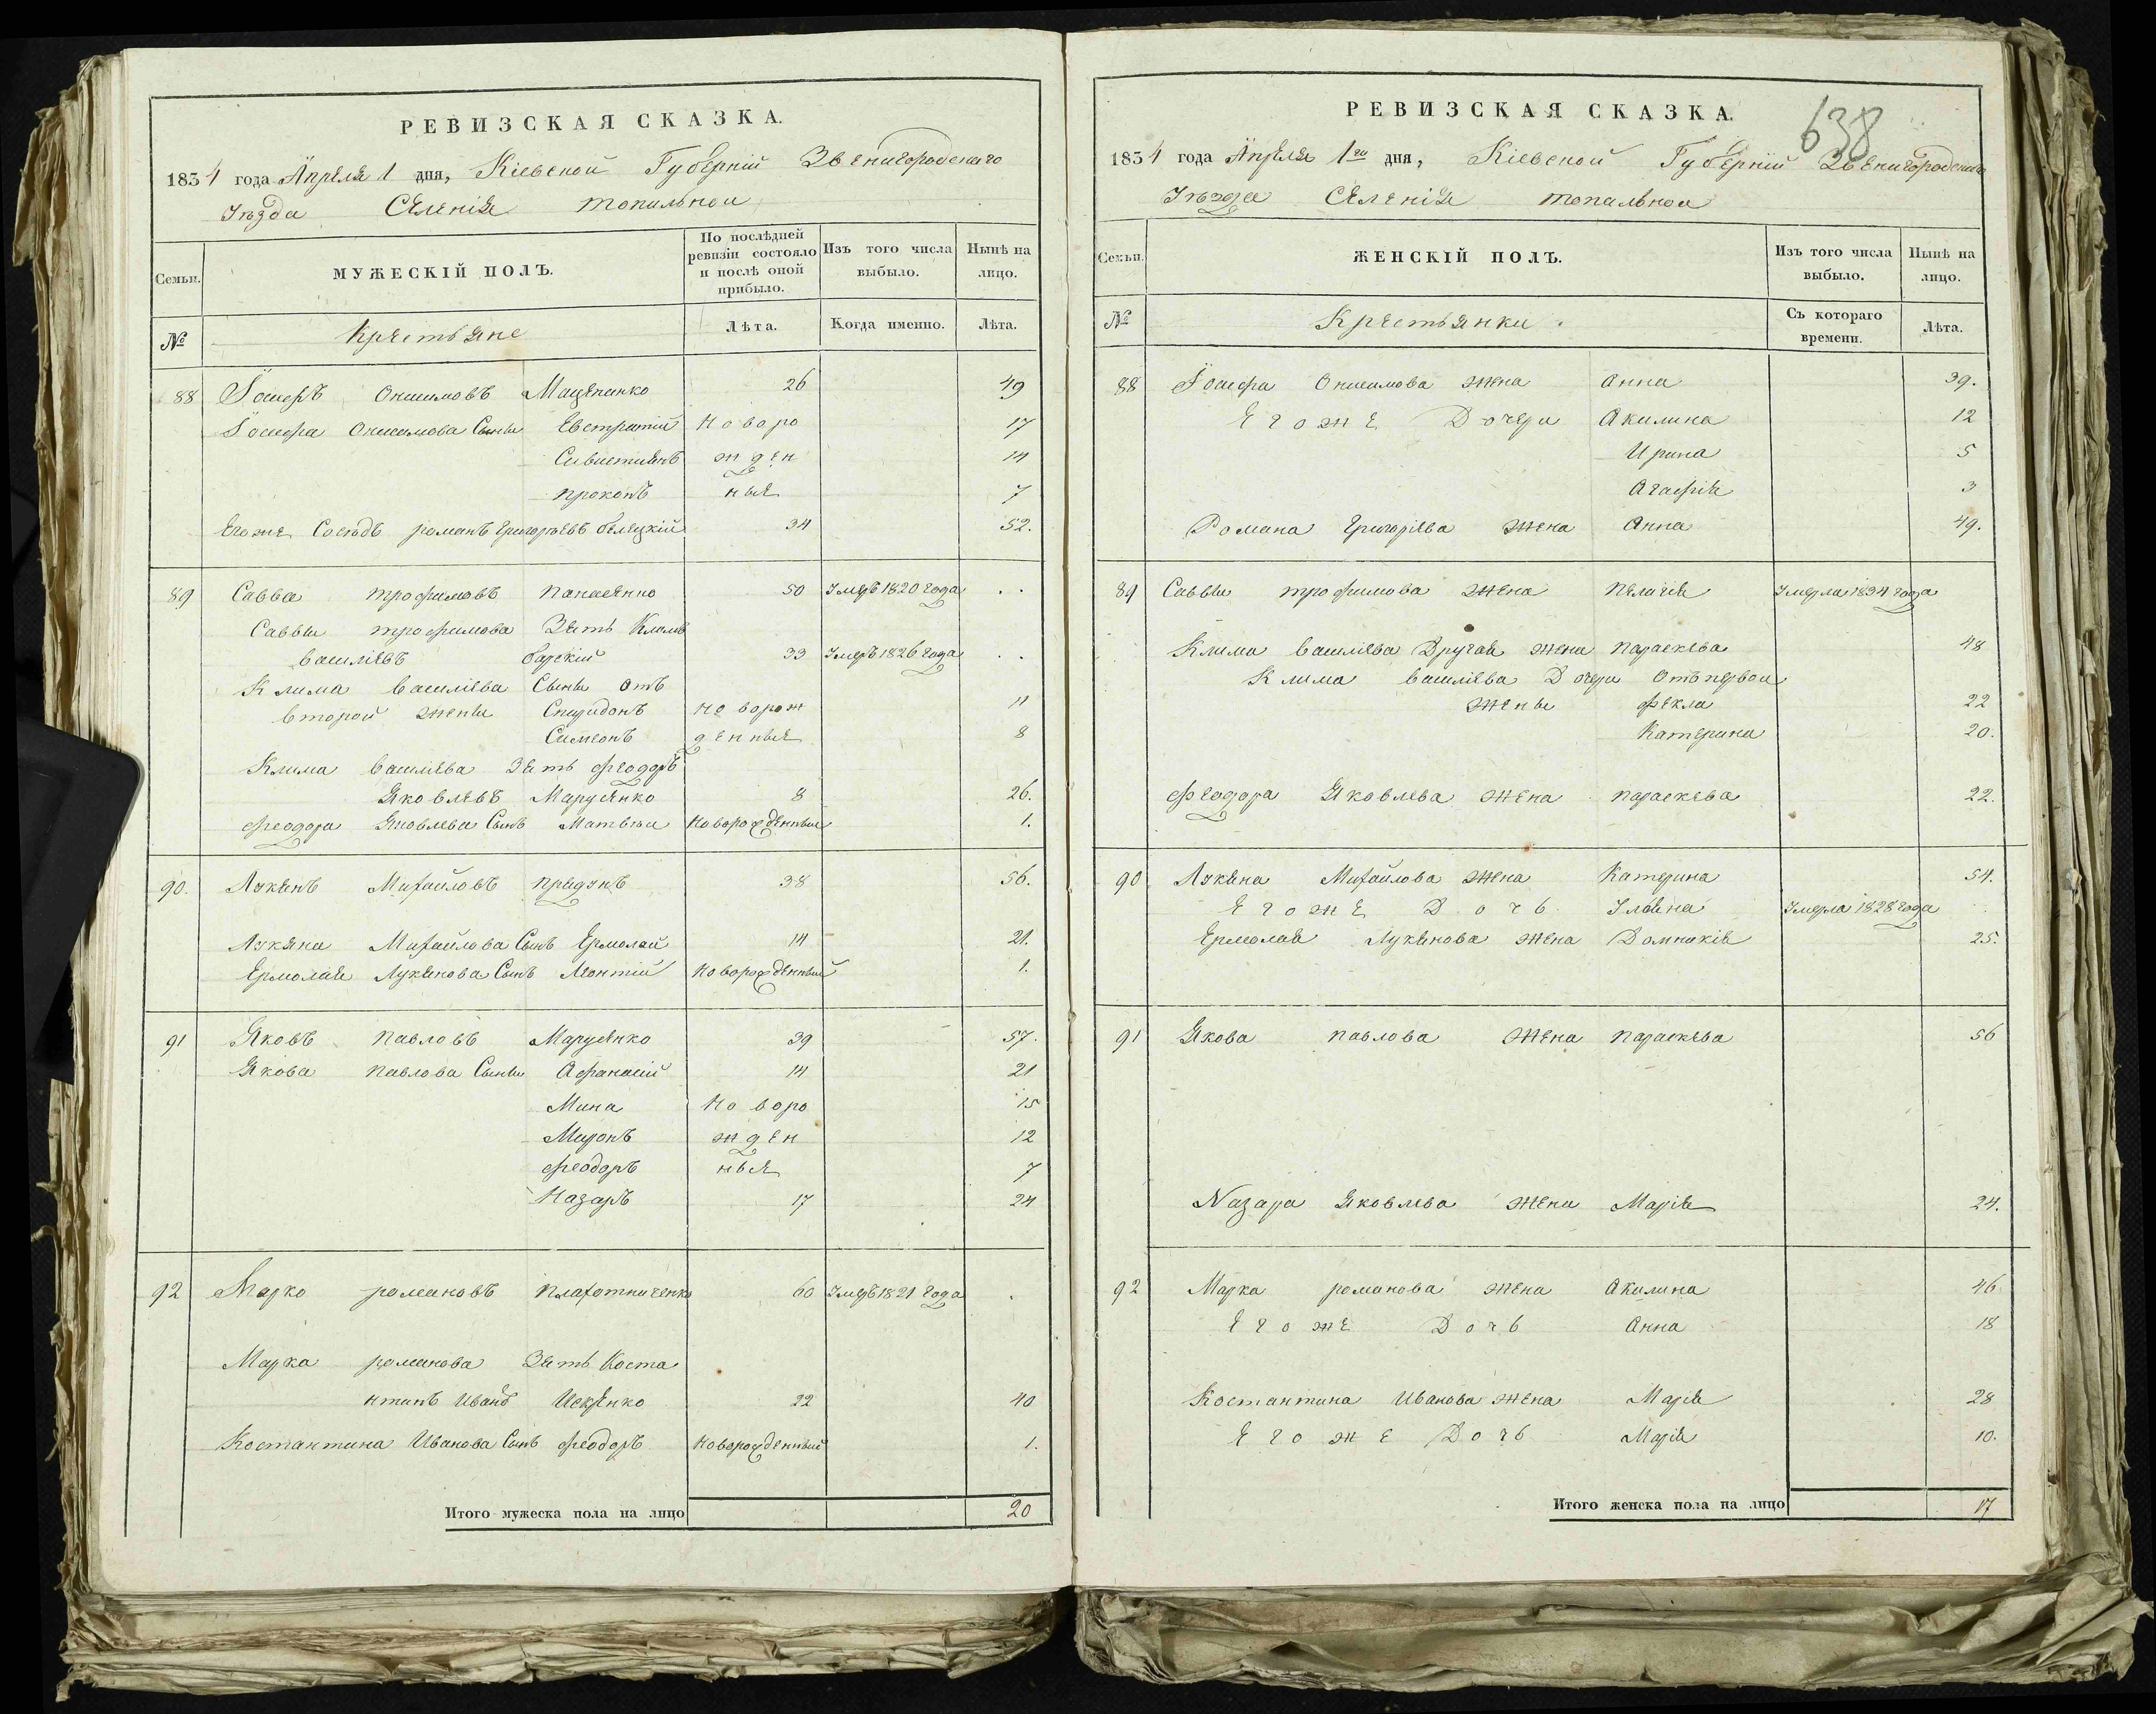 РЕВИЗСКАЯ СКАЗКА.
1834 года Апреля 1 дня, Кіевской Губерніи Звенигородскаго
Уезда Селенія топильной
Семьи. МУЖЕСКІЙ ПОЛЪ. По послѣдней ревизіи состояло и послѣ оной прибыло. Изъ того числа выбыло. Нынѣ на лицо.
№ Крестьяне Лѣта. Когда именно. Лѣта.
88 Іосифъ Онисимовъ Мацепенко 26 49
Іосифа Онисимова Сыны Евстратій новоро 17
Сивистиянъ жден 14
прокопъ ные 7
Егоже Соседъ романъ Григорьевъ белецкій 34 52.
89 Савва трофимовъ панасенко 50 Умеръ 1820 года . .
Саввы трофимова Зять Климъ
василіевъ барскій 33 Умеръ 1826 года . .
Клима василіева Сыны отъ
второй жены Спиридонъ новорож 11
Симеонъ денные 8
Клима василіева Зять феодоръ
Яковлевъ Марусенко 8 26.
феодора Яковлева Сынъ Матвеи новорожденныи 1.
90. Лукянъ Михайловъ придунъ 38 56.
Лукяна Михайлова Сынъ Ермолай 14 21.
Ермолая Лукянова Сынъ Леонтій новорожденный 1.
91 Яковъ павловъ Марусенко 39 57.
Якова павлова Сыны Афанасій 14 21
Мина новоро 15
Миронъ жден 12
феодоръ ные 7
Назаръ 17 24
92 Марко романовъ плахотниченко 60 Умеръ 1821 года .
Марка романова Зять Коста
нтинъ Иванъ Искренко 22 40
Костантина Иванова Сынъ феодоръ новорожденный 1.
Итого мужеска пола на лицо 20
638
РЕВИЗСКАЯ СКАЗКА.
1834 года Апреля 1го дня, Кіевской Губерніи Звенигородскаго
Уезда Селенія топильной
Семьи. ЖЕНСКІЙ ПОЛЪ. Изъ того числа выбыло. Нынѣ на лицо.
№ Крестьянки. Съ котораго времени. Лѣта.
88 Іосифа Онисимова жена Анна 39.
Егоже Дочери Акилина 12
Ирина 5
Агафія 3
Романа Григорієва жена Анна 49.
89 Саввы трофимова жена пелагія Умерла 1834 года
Клима василіева Другая жена параскева 48
Клима василіева Дочери отъ первои
жены фекла 22
Катерина 20.
феодора Яковлева жена параскева 22.
90 Лукяна Михайлова жена Катерина 54.
Егоже Дочь Уляна Умерла 1828 года
Ермолая Лукянова жена Домникія 25.
91 Якова павлова жена параскева 56
Nазара Яковлева жена Марія 24.
92 Марка романова жена Акилина 46
Егоже Дочь Анна 18
Костантина Иванова жена Марія 28
Егоже Дочь Марія 10.
Итого женска пола на лицо 17